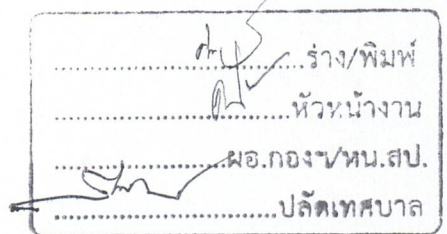 ....................ร่าง/พิมพ์
....................หัวหน้างาน
....................ผอ.กองฯ/หน.สป.
....................ปลัดเทศบาล